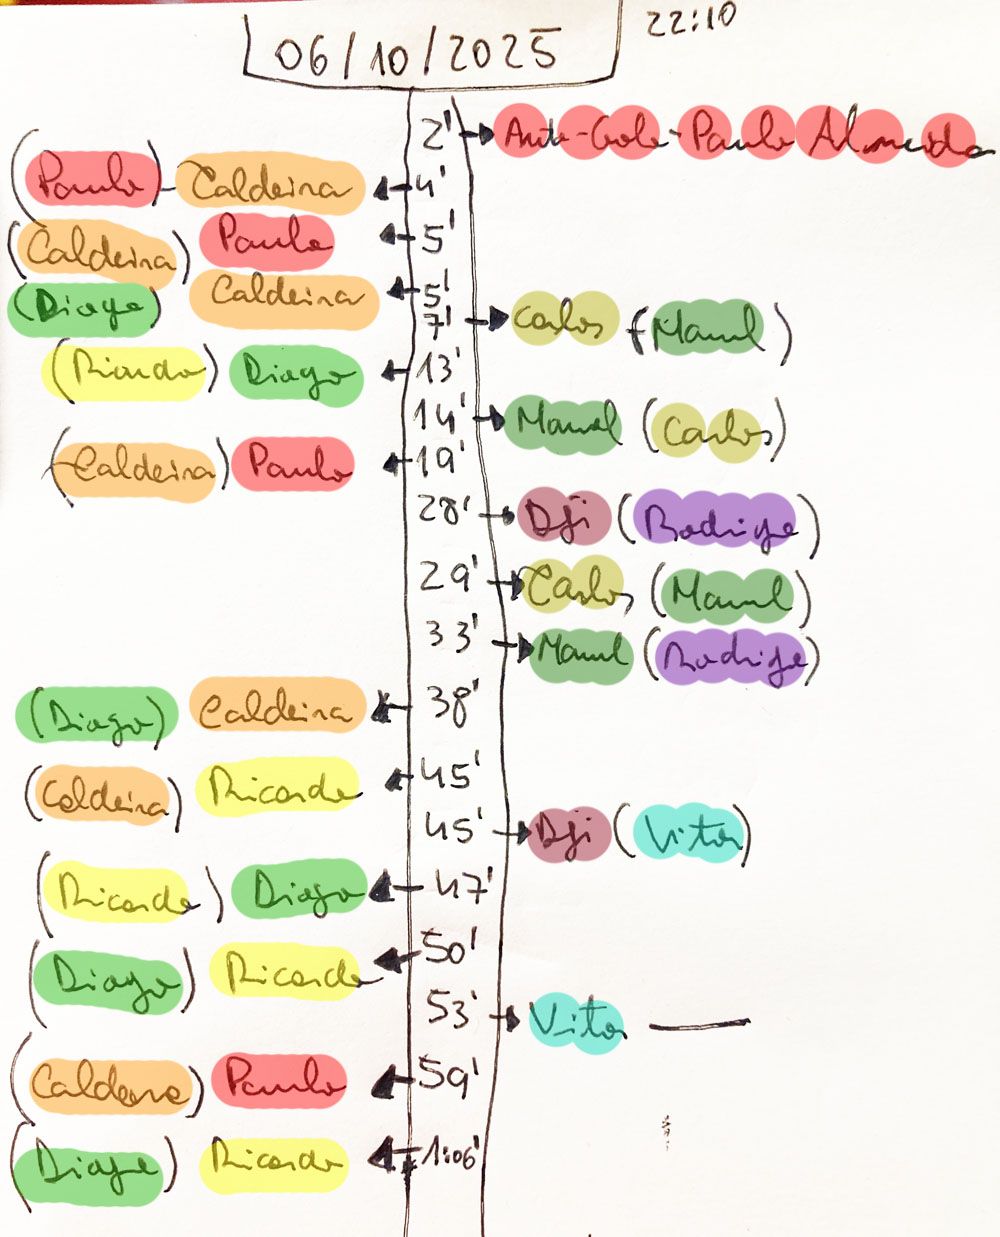 22:10
06/10/2025
2' Auto-Golo-Paulo Almeida
(Paulo) - Caldeira 4'
(Caldeira) Paulo 5'
(Diogo) Caldeira 5'
7' Carlos (Manel)
(Ricardo) Diogo 13'
14' Manel (Carlos)
(Caldeira) Paulo 19'
28' Dji (Rodrigo)
29' Carlos (Manel)
33' Manel (Rodrigo)
(Diogo) Caldeira 38'
(Caldeira) Ricardo 45'
45' Dji (Vitor)
(Ricardo) Diogo 47'
(Diogo) Ricardo 50'
53' Vitor —
(Caldeira) Paulo 59'
(Diogo) Ricardo 1:06'